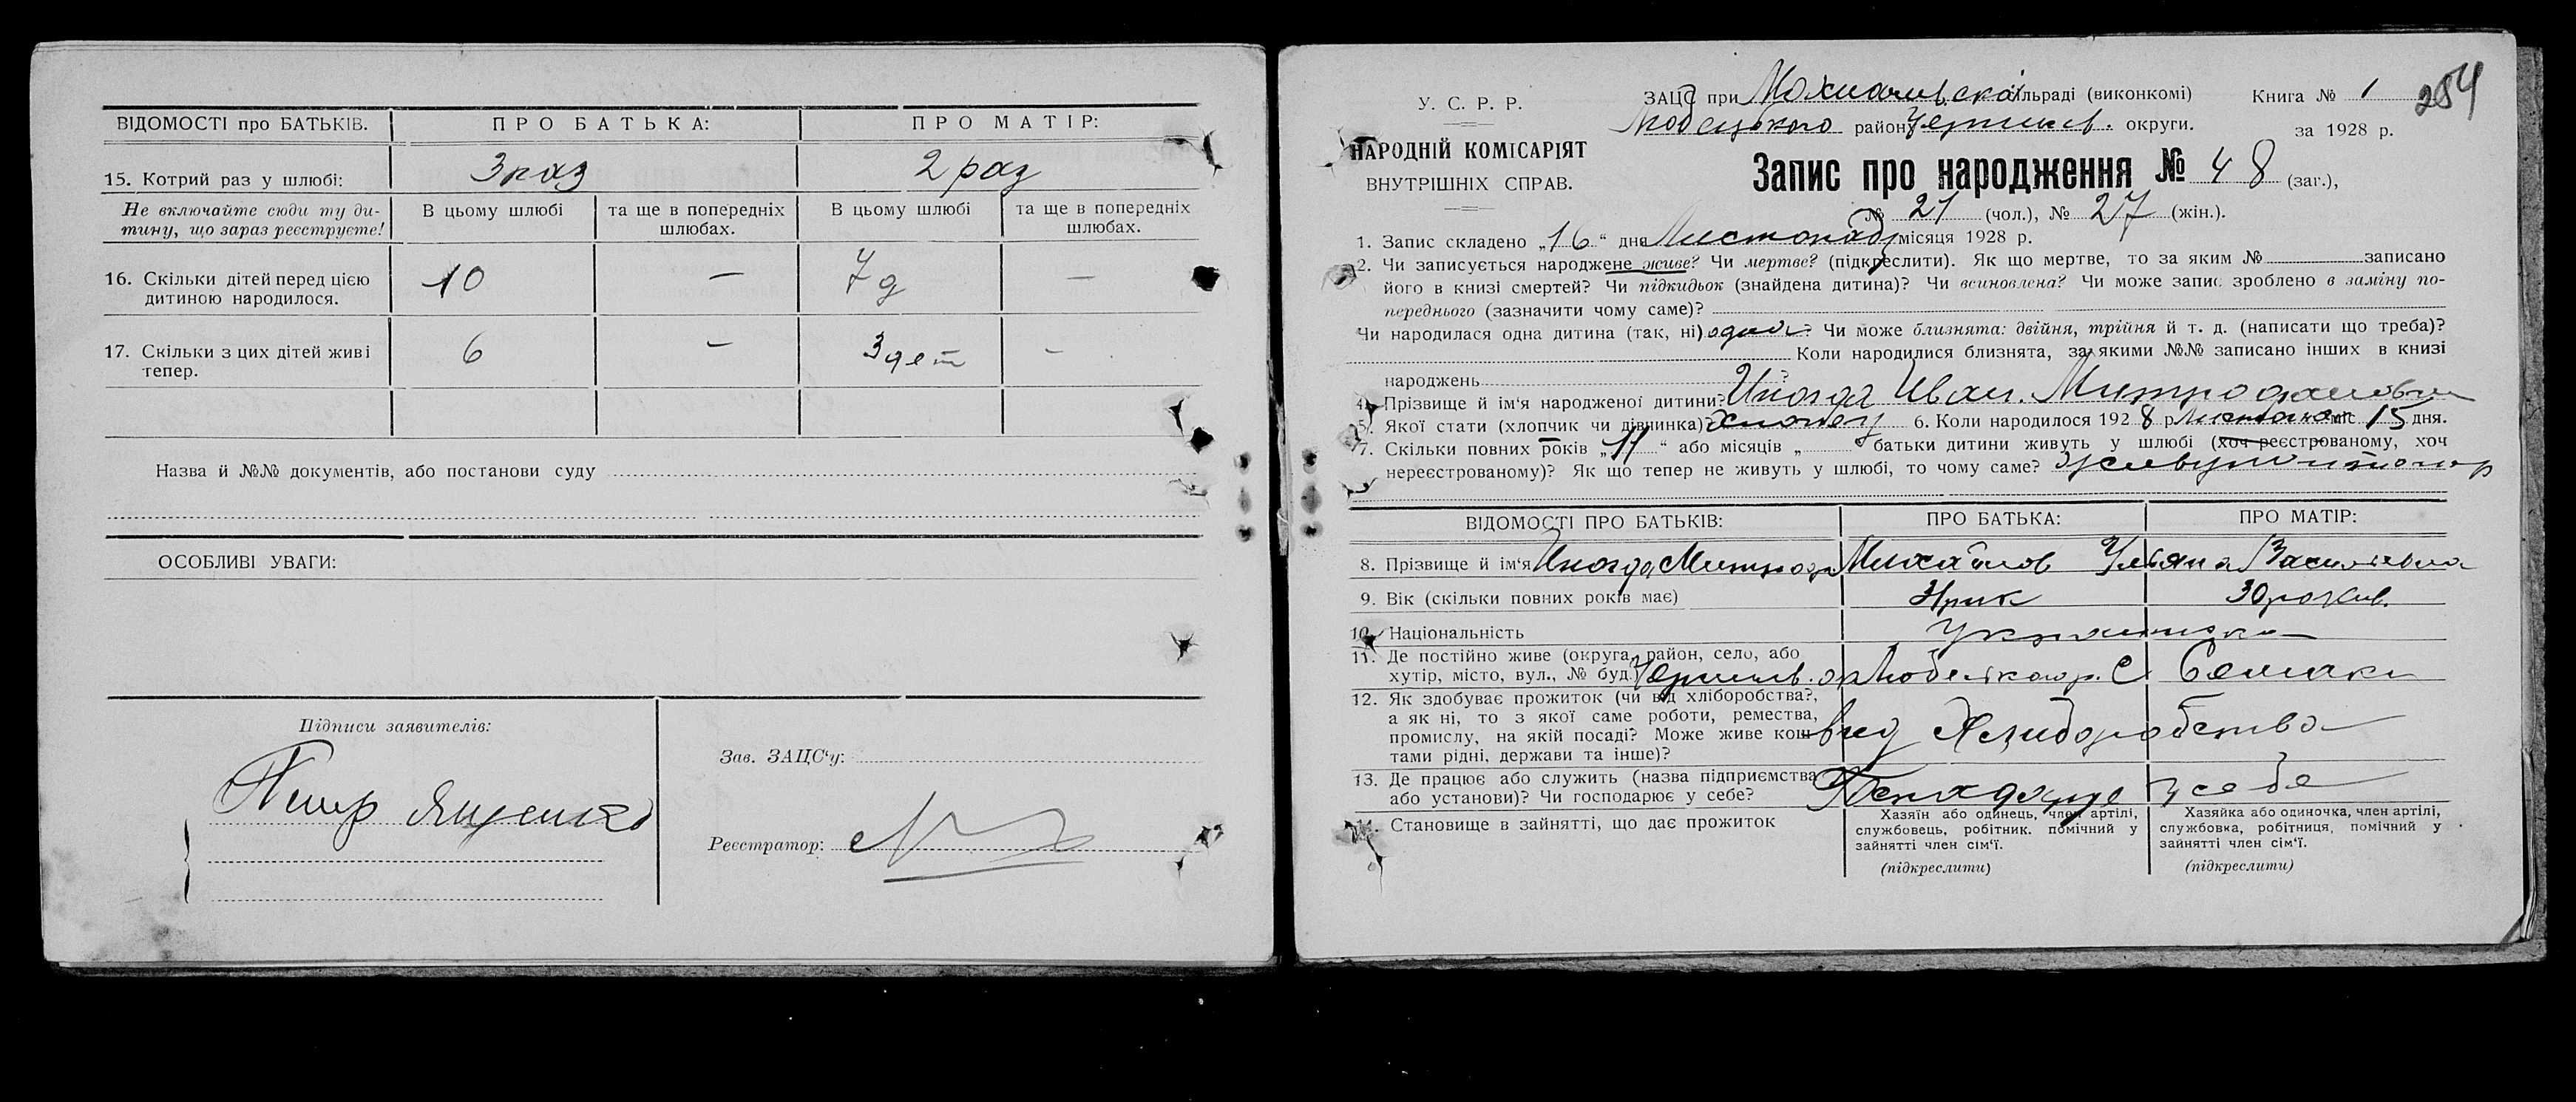 ВІДОМОСТІ про БАТЬКІВ. ПРО БАТЬКА: ПРО МАТІР:
15. Котрий раз у шлюбі: 3 раз 2 раз
Не включайте сюди ту ди-
тину, що зараз реєструєте!
В цьому шлюбі та ще в попередніх шлюбах. В цьому шлюбі та ще в попередніх шлюбах.
16. Скільки дітей перед цією 10 — 7 д —
дитиною народилося.
17. Скільки з цих дітей живі 6 — 3 дет —
тепер.
Назва й №№ документів, або постанови суду
ОСОБЛИВІ УВАГИ:
Підписи заявителів:
Ященко
Зав. ЗАЦС'у:
Реєстратор:
284
У. С. Р. Р.
НАРОДНІЙ КОМІСАРІЯТ
ВНУТРІШНІХ СПРАВ.
ЗАЦС при сільраді (виконкомі) Книга № 1
Любецького району Чернигів. округи. за 1928 р.
Запис про народження № 48 (заг.),
№ 21 (чол.), № 27 (жін.).
1. Запис складено „16“ дня Листопада місяця 1928 р.
2. Чи записується народжене живе? Чи мертве? (підкреслити). Як що мертве, то за яким № записано
його в книзі смертей? Чи підкидьок (знайдена дитина)? Чи всиновлена? Чи може запис зроблено в заміну по-
переднього (зазначити чому саме)?
Чи народилася одна дитина (так, ні) одна? Чи може близнята: двійня, трійня й т. д. (написати що треба)?
Коли народилися близнята, за якими №№ записано інших в книзі
народжень ?
4. Прізвище й ім'я народженої дитини? Иван
5. Якої стати (хлопчик чи дівчинка)? Хлопец 6. Коли народилося 1928 р. міс 15 дня.
7. Скільки повних років „11“ або місяців „ “ батьки дитини живуть у шлюбі (хоч реєстрованому, хоч
нереєстрованому)? Як що тепер не живуть у шлюбі, то чому саме?
ВІДОМОСТІ ПРО БАТЬКІВ: ПРО БАТЬКА: ПРО МАТІР:
8. Прізвище й ім'я Михайлов Ульяна Васильевна
9. Вік (скільки повних років має) 30 роков.
10. Національність
11. Де постійно живе (округа, район, село, або
хутір, місто, вул., № буд.)
12. Як здобуває прожиток (чи від хліборобства?,
а як ні, то з якої саме роботи, ремества,
промислу, на якій посаді? Може живе кош-
тами рідні, держави та інше)?
вид Хлиборобства
13. Де працює або служить (назва підприємства
або установи)? Чи господарює у себе? у себе
14. Становище в зайнятті, що дає прожиток
Хазяїн або одинець, член артілі,
службовець, робітник. помічний у
зайнятті член сім'ї.
(підкреслити)
Хазяйка або одиночка, член артілі,
службовка, робітниця, помічний у
зайнятті член сім'ї.
(підкреслити)